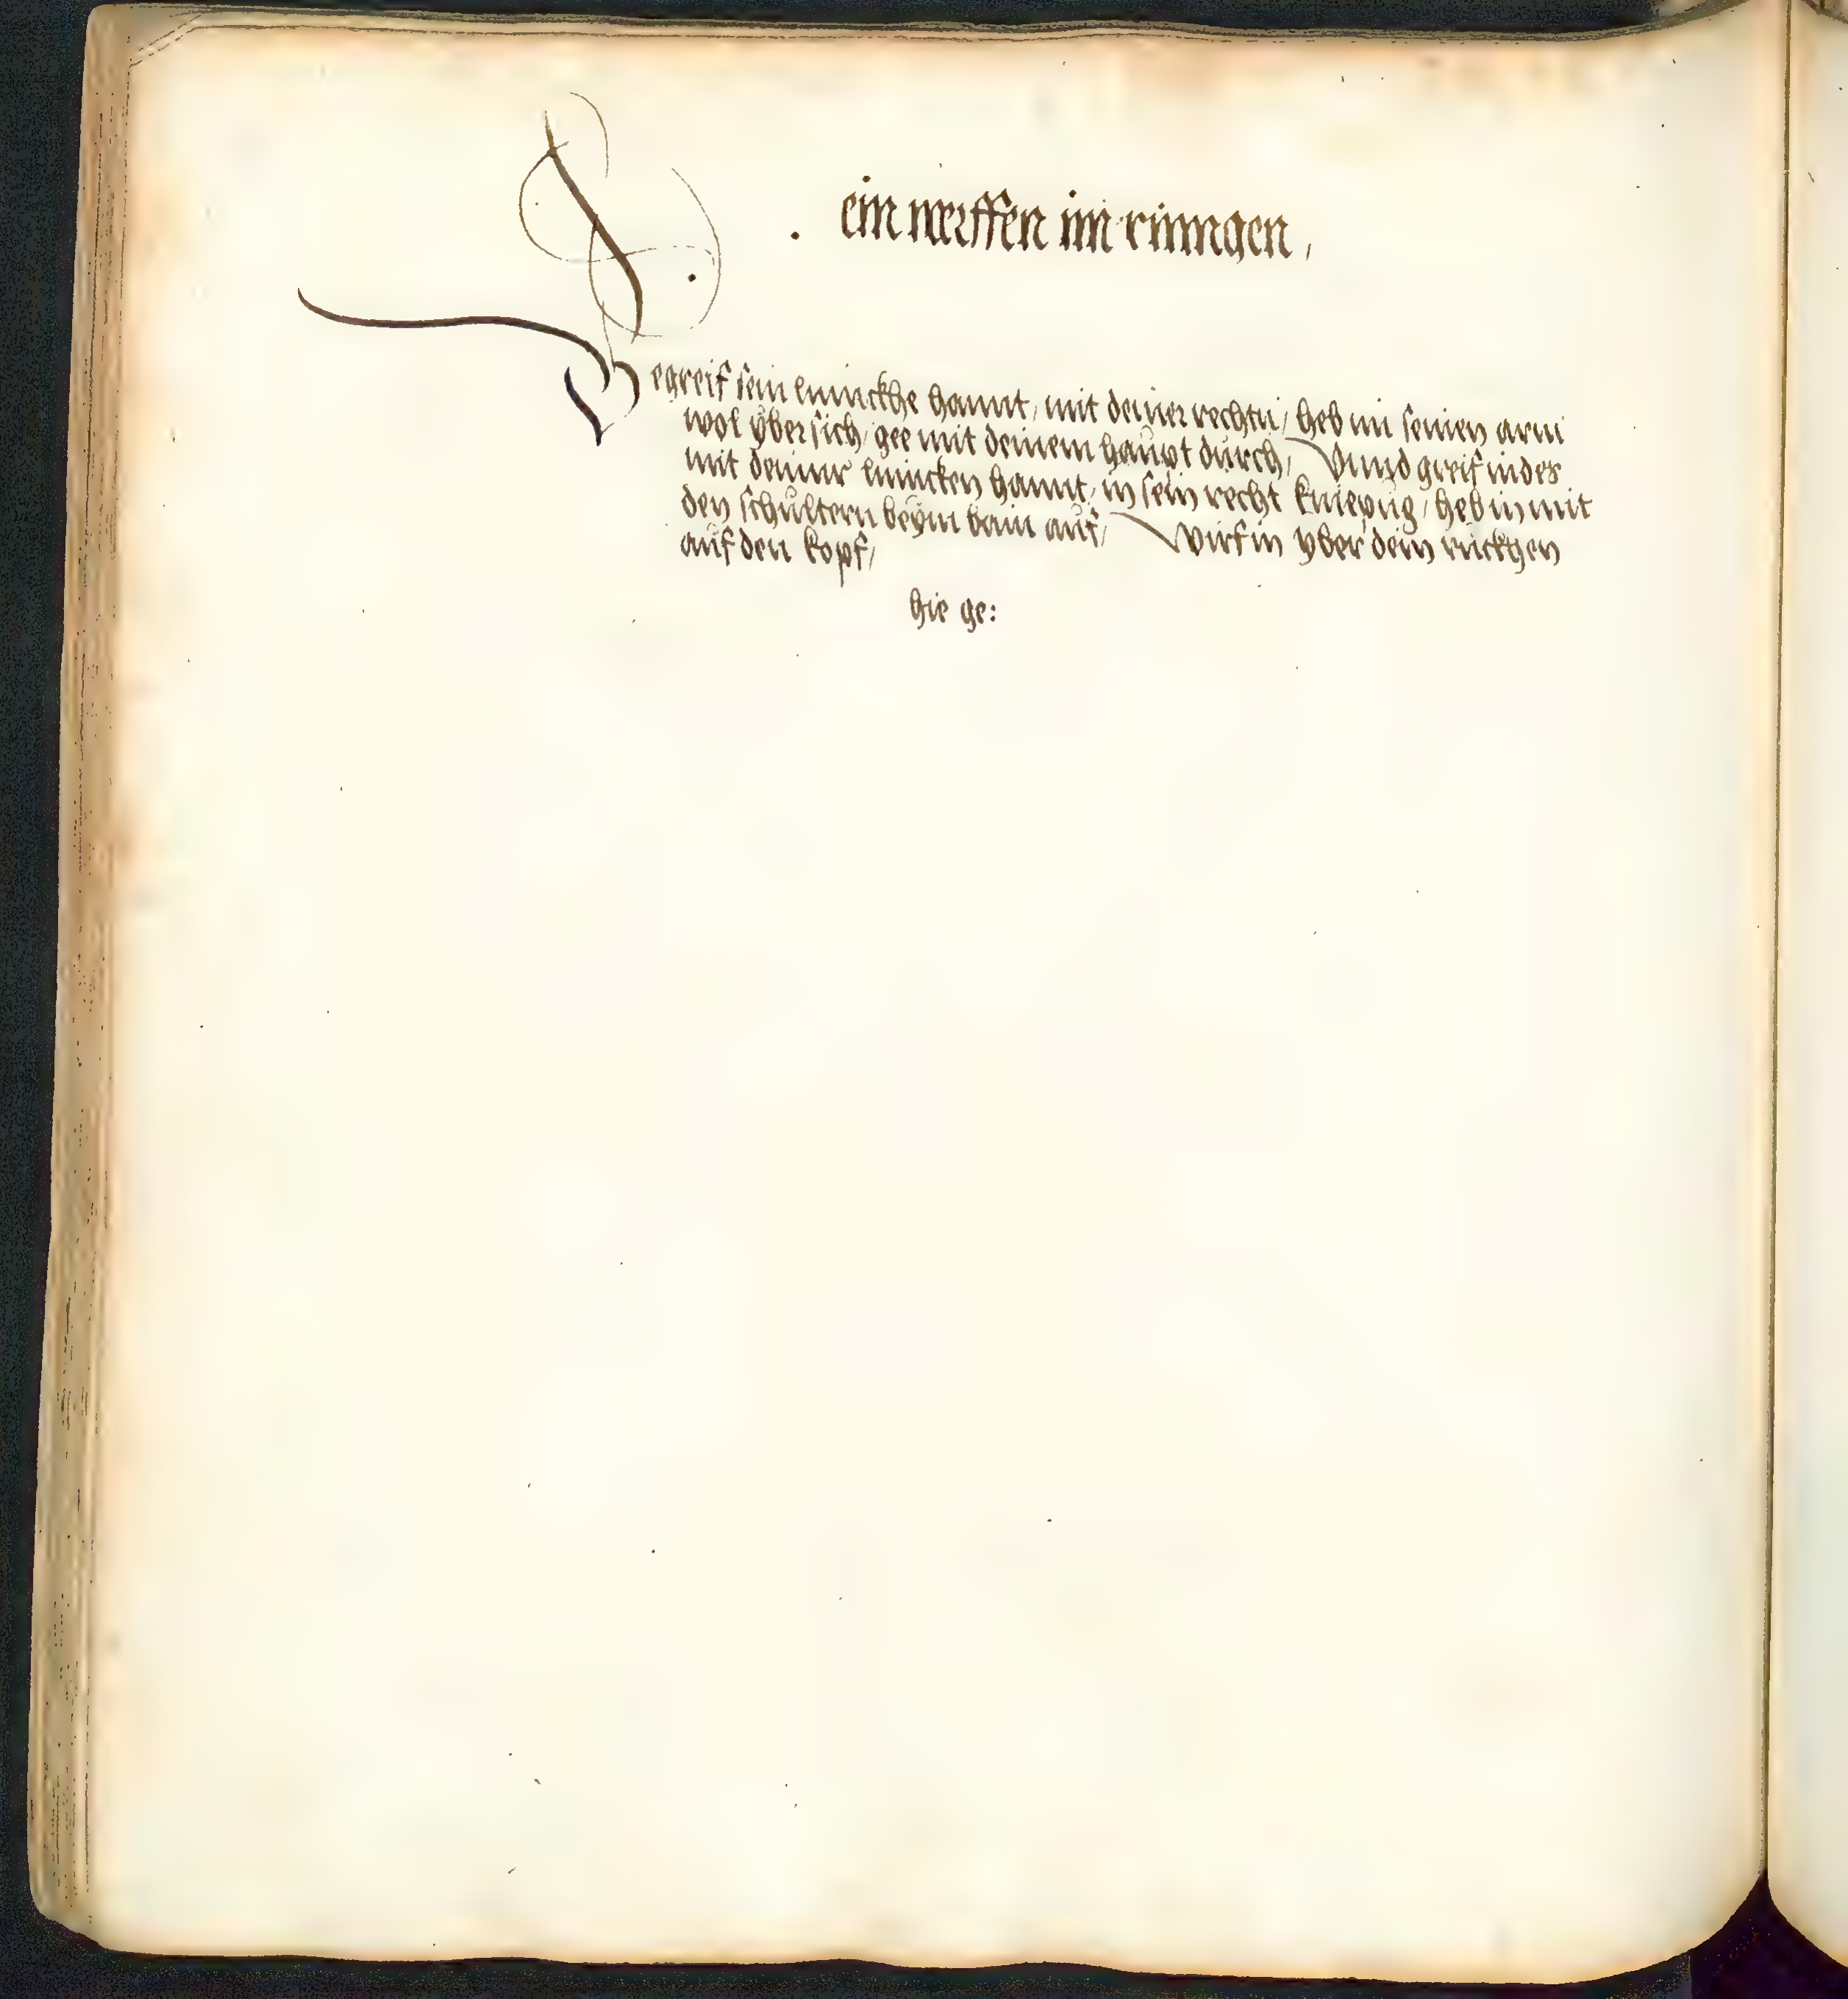 . ein werffen im rinngen,
Begreif sein linnckhe hannt, mit deiner rechtn/ heb im seinen arm
wol yber sich/ gee mit deinem haupt durch/ Vnnd greif indes
mit deinnr linncken hannt, in sein recht kniepug/ heb in mit
den schultern beym bain auf/ Wirf in yber dein rückhen
auf den kopf/
hie ge: